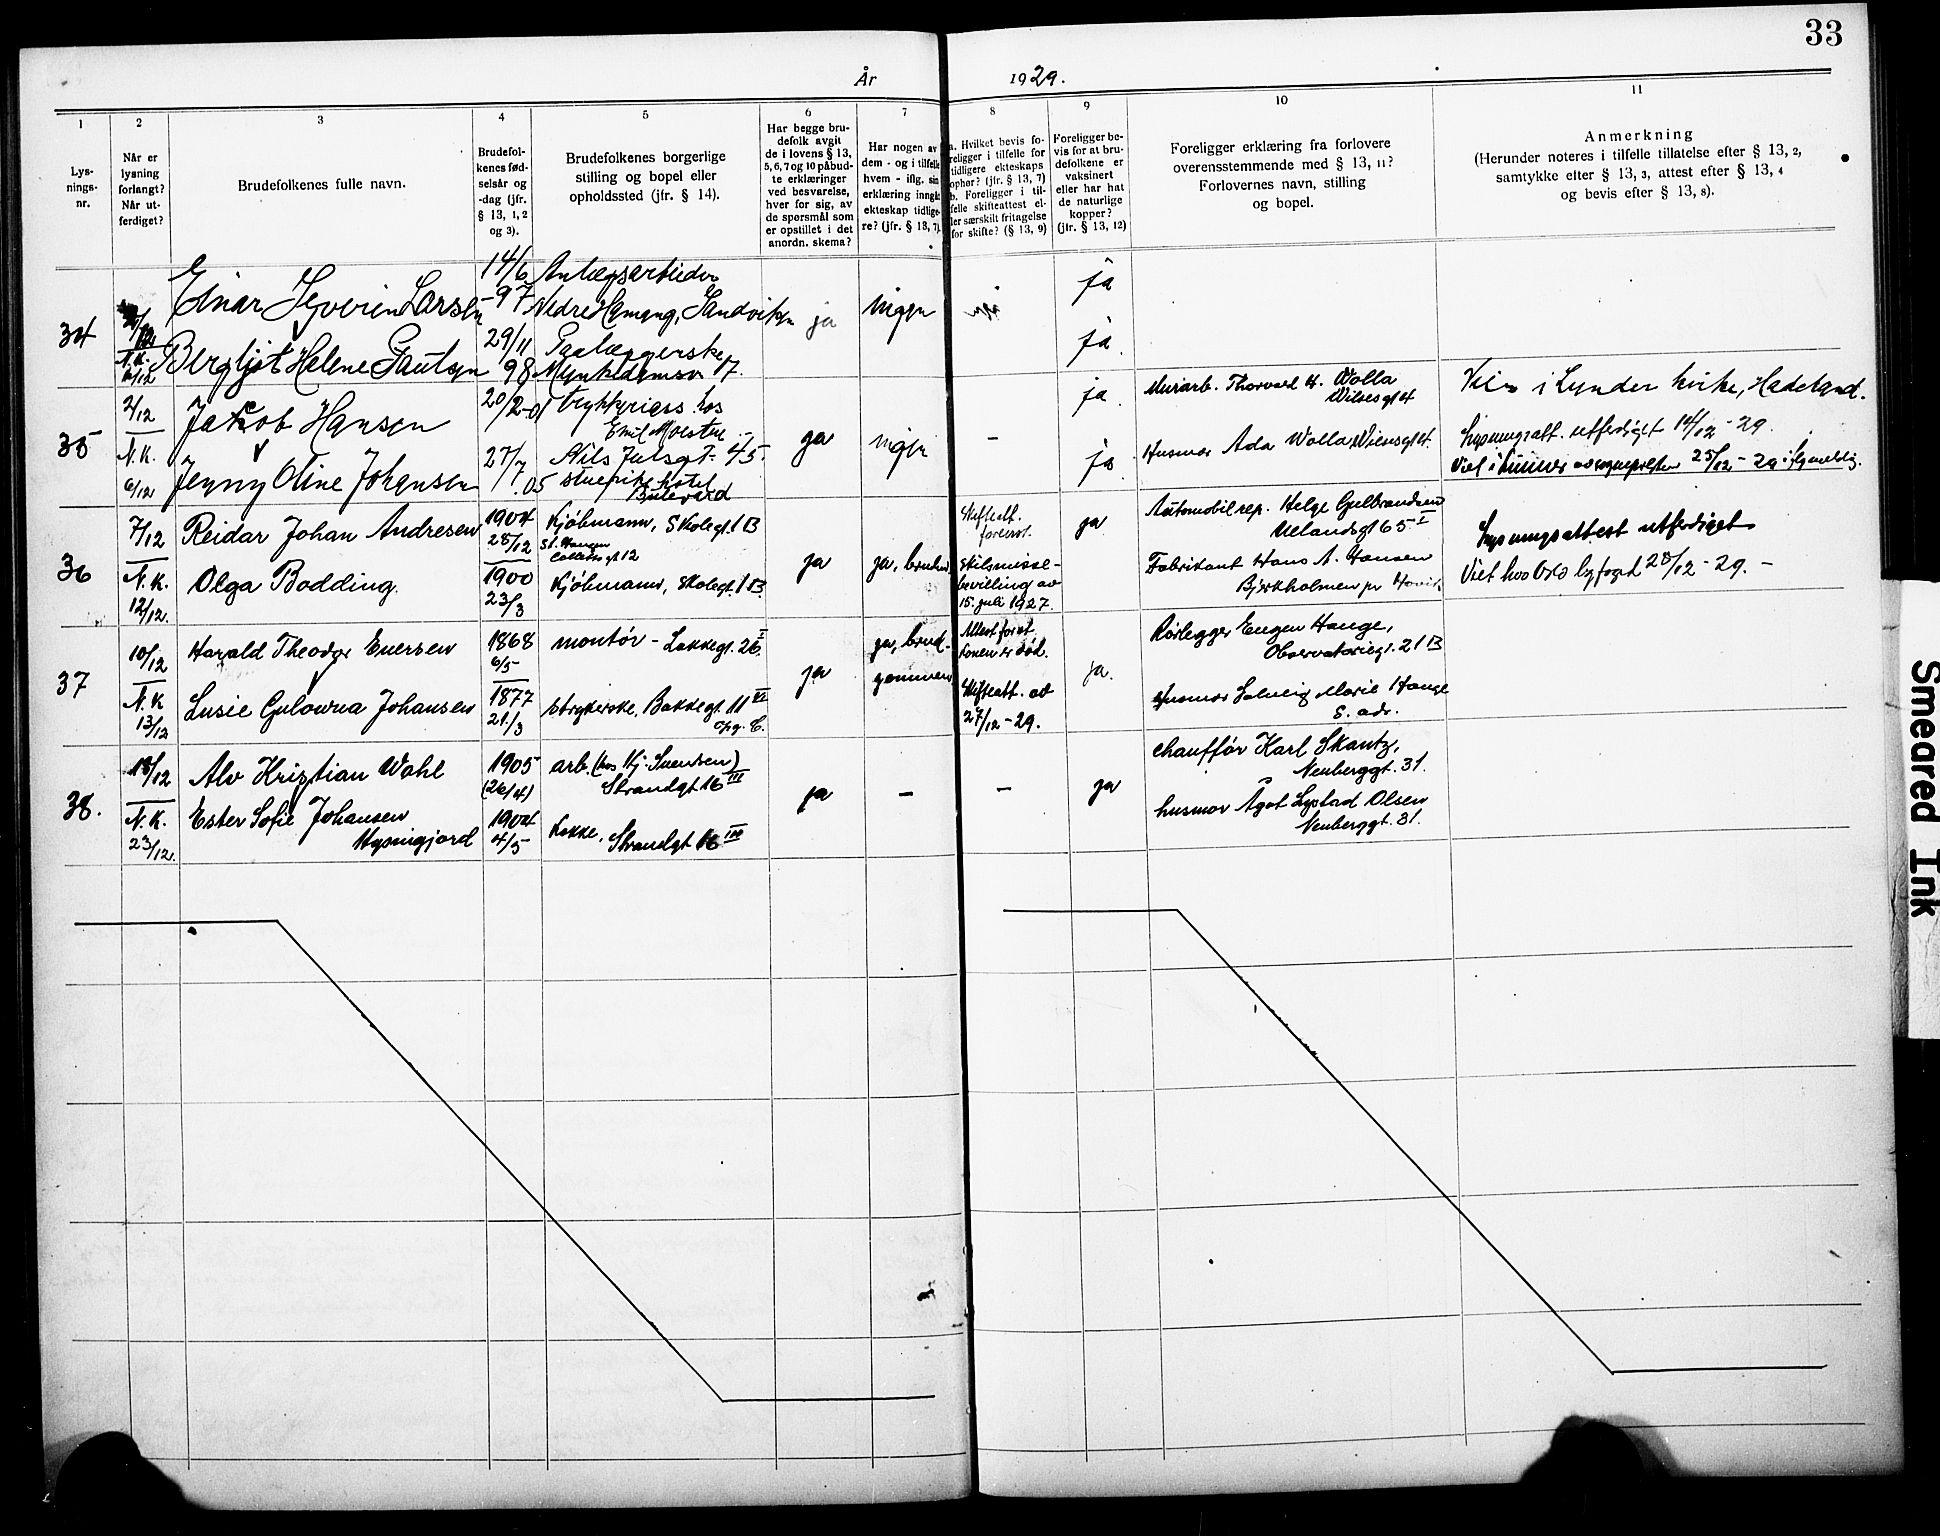 33
År 1929.
1
Lys-
nings-
nr.
2
Når er
lysning
forlangt?
Når ut-
ferdiget?
3
Brudefolkenes fulle navn.
4
Brudefol-
kenes fød-
selsår og
-dag (jfr.
§ 13, 1, 2
og 3).
5
Brudefolkenes borgerlige
stilling og bopel eller
opholdssted (jfr. § 14).
6
Har begge bru-
defolk avgit
de i lovens § 13,
5, 6, 7 og 10 påbud-
te erklæringer
ved besvarelse,
hver for sig, av
de spørsmål som
er opstillet i det
anordn. skema?
7
Har nogen av
dem - og i tilfelle
hvem - iflg. sin
erklæring inngåt
ekteskap tidlige-
re? (jfr. § 13, 7).
8
a. Hvilket bevis fo-
religger i tilfelle for
tidligere ekteskaps
ophør? (jfr. § 13, 7)
b. Foreligger i til-
felle skifteattest el-
ler særskilt fritagelse
for skifte? (§ 13, 9)
9
Foreligger be-
vis for at bru-
defolkene er
vaksinert
eller har hat
de naturlige
kopper?
(jfr. § 13, 12)
10
Foreligger erklæring fra forlovere
overensstemmende med § 13, 11?
Forlovernes navn, stilling
og bopel.
11
Anmerkning
(Herunder noteres i tilfelle tillatelse efter § 13, 2,
samtykke efter § 13, 3, attest efter § 13, 4
og bevis efter § 13, 8).
34
N.K.
6/12
Einar Severin Larsen
Bergljot Helene Paulsen
14/6
-97
29/11
98
Anlegsarbeider
Nedre Hamang, Sandviken
Munkedamsv 17.
ja
ingen
ja
ja.
35
2/12
N.K.
6/12
Jakob Hansen
Jenny Oline Johansen
20/2-01
27/7
.05
hos
Emil Moestue
Nils Juelsgt. 45.
stuepike hotel
Bulevard
ja
ingen
-
ja.
ja
Murarb. Thorvald H. Wolla
Wilsesgt 4
Husmor Ada Wolla Wilsesgt 4.
Viet i Lunder kirke, Hadeland.
Lysningsatt. utferdiget 14/12 - 29.
Viet i Lunner av sognepresten 25/12 - 29
36
7/12
N.K.
12/12.
Reidar Johan Andresen
Olga Bodding.
1904
28/12
1900
23/3
Kjøbmann, Skolegt. 1 B
St. Hansen
Colletts gt 12
Kjøbmann, Skolegt. 1 B.
ja
ja, bruden
Skifteatt.
forevist.
Skilsmisse-
bevilling av
15. juli 1927.
ja
Automobilrep. Helge Gulbrandsen
Uelandsgt 65 I
Fabrikant Hans A. Hansen
Bjerkholmen pr Høvik.
Lysningsattest utferdiget
Viet hos Oslo byfogd 28/12 - 29. -
37
10/12
N.K
13/12
Harald Theodor Evensen
Lusie Gulowna Johansen
1868
6/5
1877
21./3
montør - Lakkegt. 26 I
strykerske, Bakkegt. 11 VI
opg. C.
ja
ja, brud-
gommen
Attest for at
konen er død.
Skifteatt. av
27/12 - 29.
ja.
Rørlegger Eugen Hauge,
Observatoriegt. 21 B
Husmor Solveig Marie Hauge
s. adr.
38.
18/12
N.K.
23/12.
Alv Kristian Wahl
Ester Sofie Johansen
Mysingjord
1905
(26/4)
1904
4/5
arb. (hos Hj. Svendsen)
Strandgt 16 III
Kokke. Strandgt 16 III
ja
-
-
ja
chauffør Karl Skantz,
Neuberggt. 31.
husmor Ågot Lystad Olsen
Neuberggt. 31.
Smeared Ink